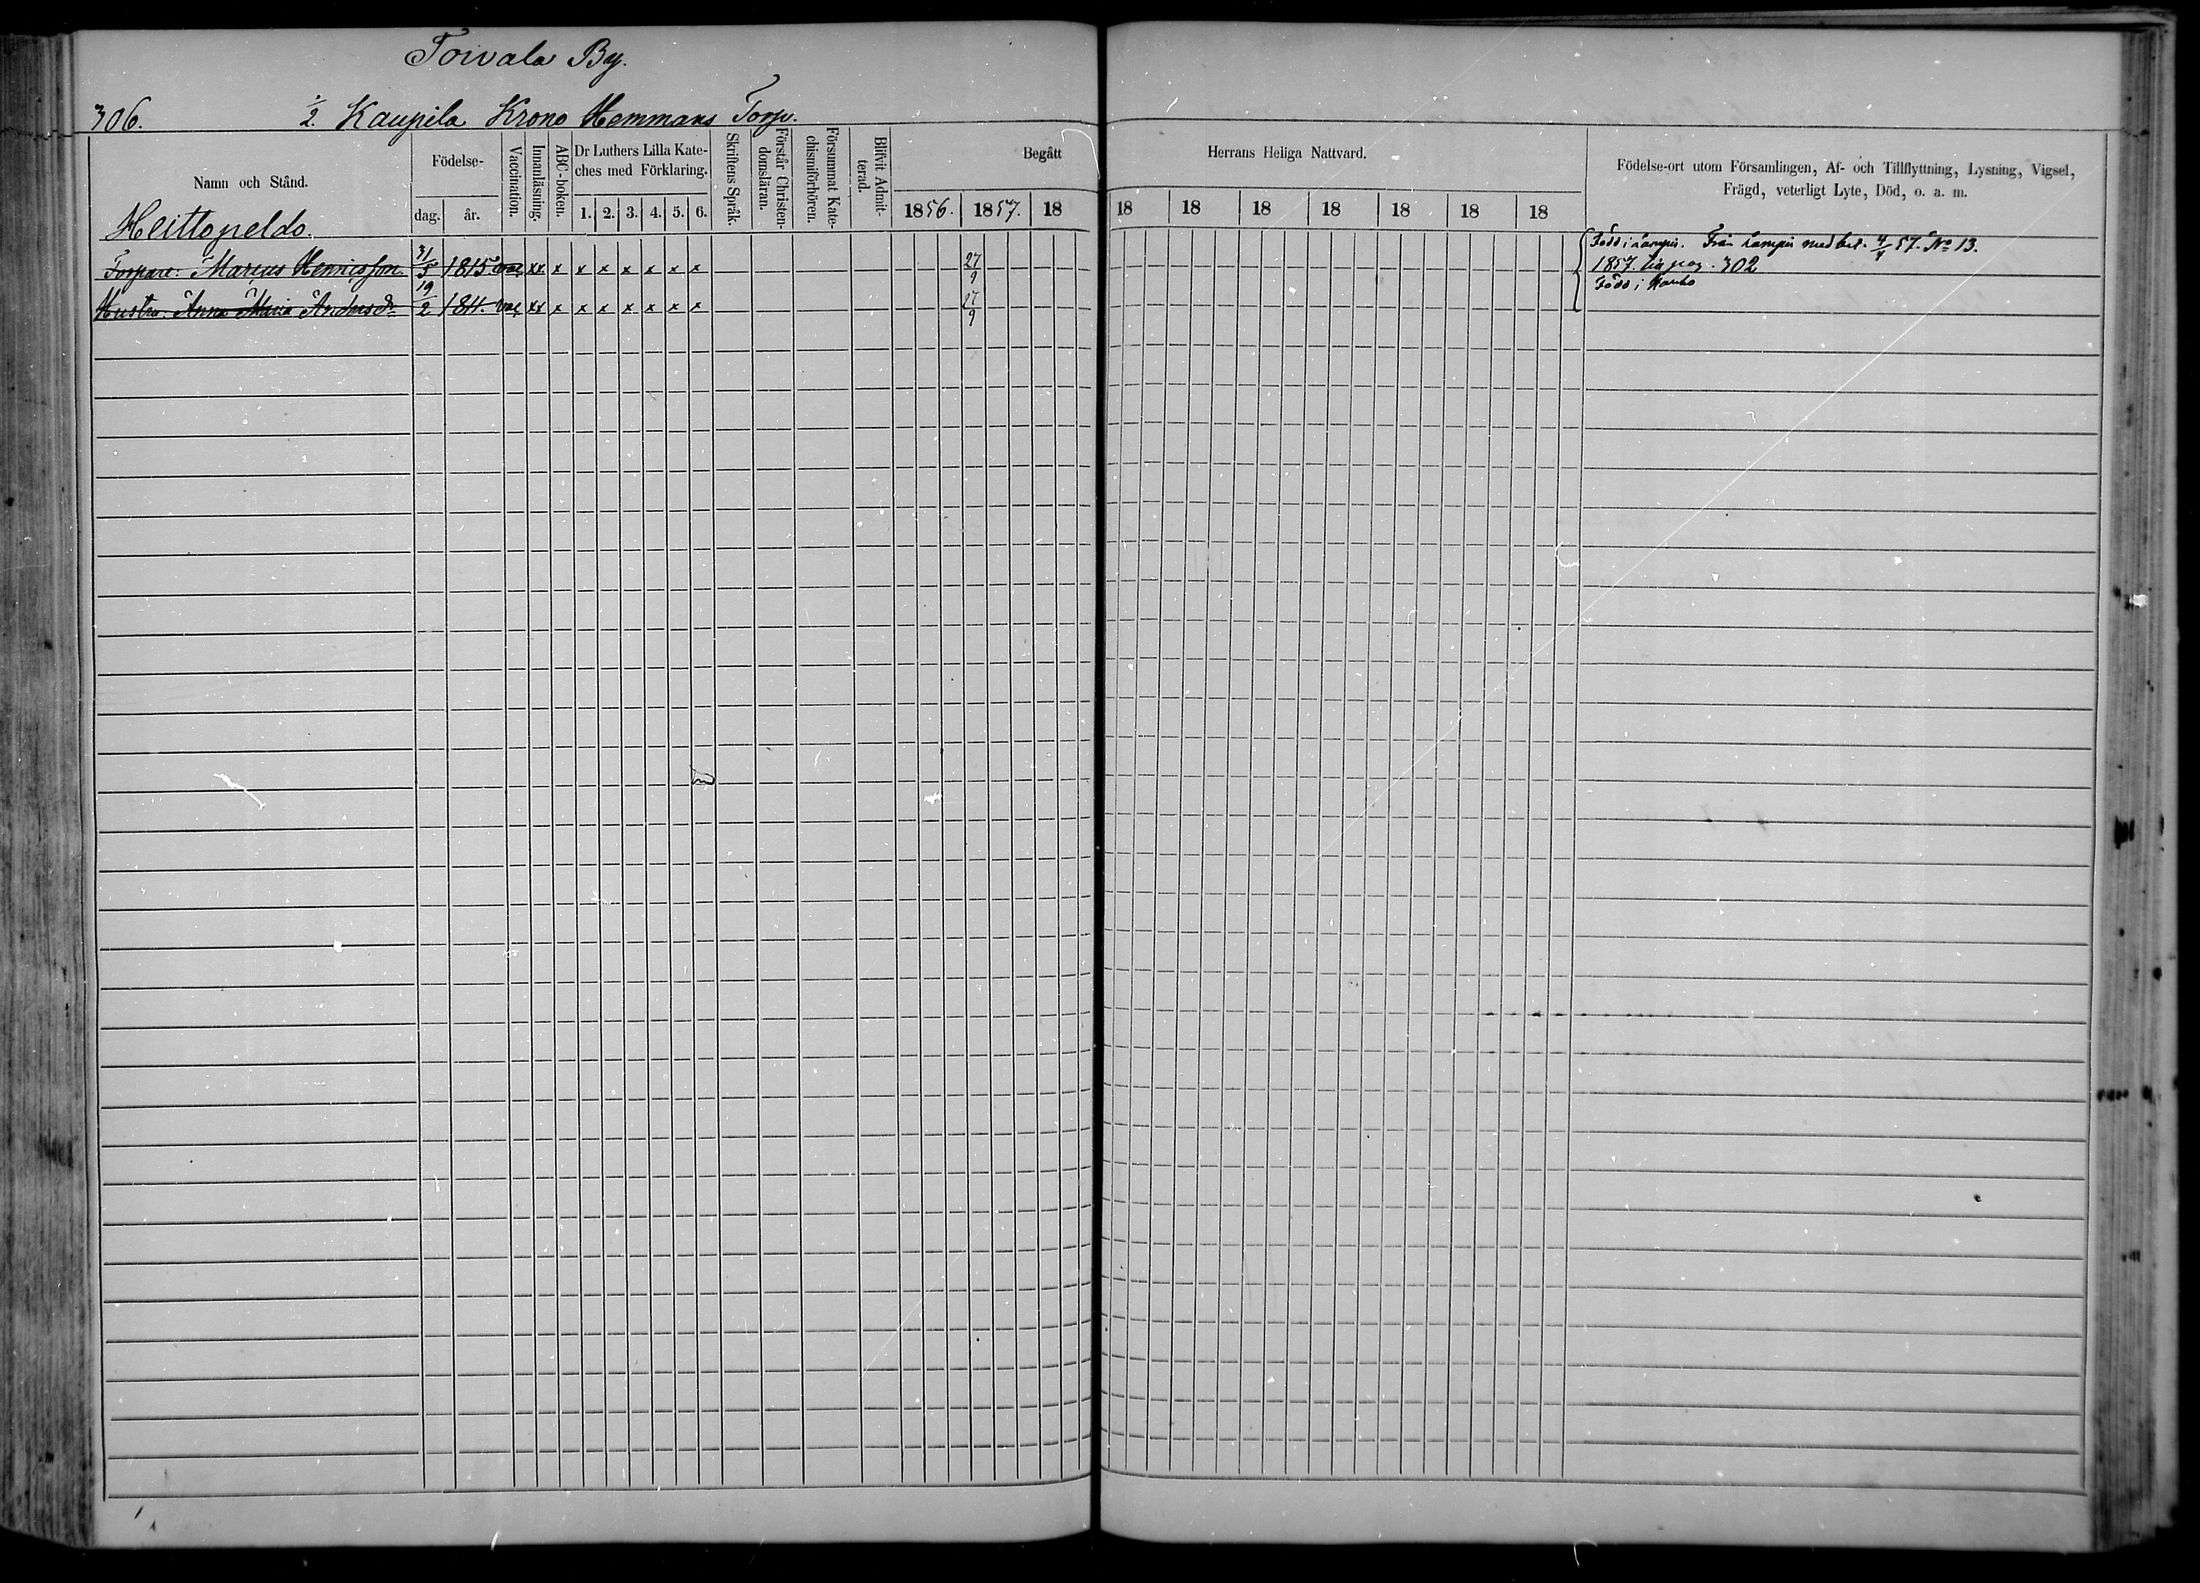 Toivala By.
306. 1/2. Kaupila Krono Hemmans Torp.
Namn och Stånd.
Födelse-
dag. år.
Vaccination.
Innanläsning.
ABC-boken.
Dr Luthers Lilla Kate-
ches med Förklaring.
1. 2. 3. 4. 5. 6.
Skriftens Språk.
Förstår Christen-
domsläran.
Försummat Kate-
chismiförhören.
Blifvit Admit-
terad.
Begått Herrans Heliga Nattvard.
1856. 1857. 18 18 18 18 18 18 18 18
Födelse-ort utom Församlingen, Af- och Tillflyttning, Lysning, Vigsel,
Frägd, veterligt Lyte, Död, o. a. m.
Heittopeldo.
Född i Lampis. Från Lampis med bet. 4/4 57. No 13.
Torpare: Marcus Henricsson 31/5 1815 vac xx x x x x x x x 27/9 1857. på pag. 302
Född i Hauho
Hustru: Anna Maria Andersdr 19/2 1811. vac xx x x x x x x x 27/9